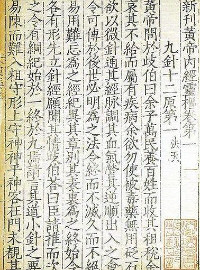 新刊黃帝內經靈樞卷第一
九針十二原第一 法天
黃帝問於歧伯曰余子萬民養百姓而收其租稅余
哀其不給而屬有疾病余欲勿使被毒藥無用砭石
欲以微針通其經脈調其血氣營其逆順出入之會
令可傳於後世必明為之法令終而不滅久而不絕
易用難忘為之經紀異其章別其表裏為之終始令
各有形先立針經願聞其情歧伯答曰臣請推而次
之令有綱紀始於一終於九焉請言其道小針之要
易陳而難入粗守形上守神神乎神客在門未覩其